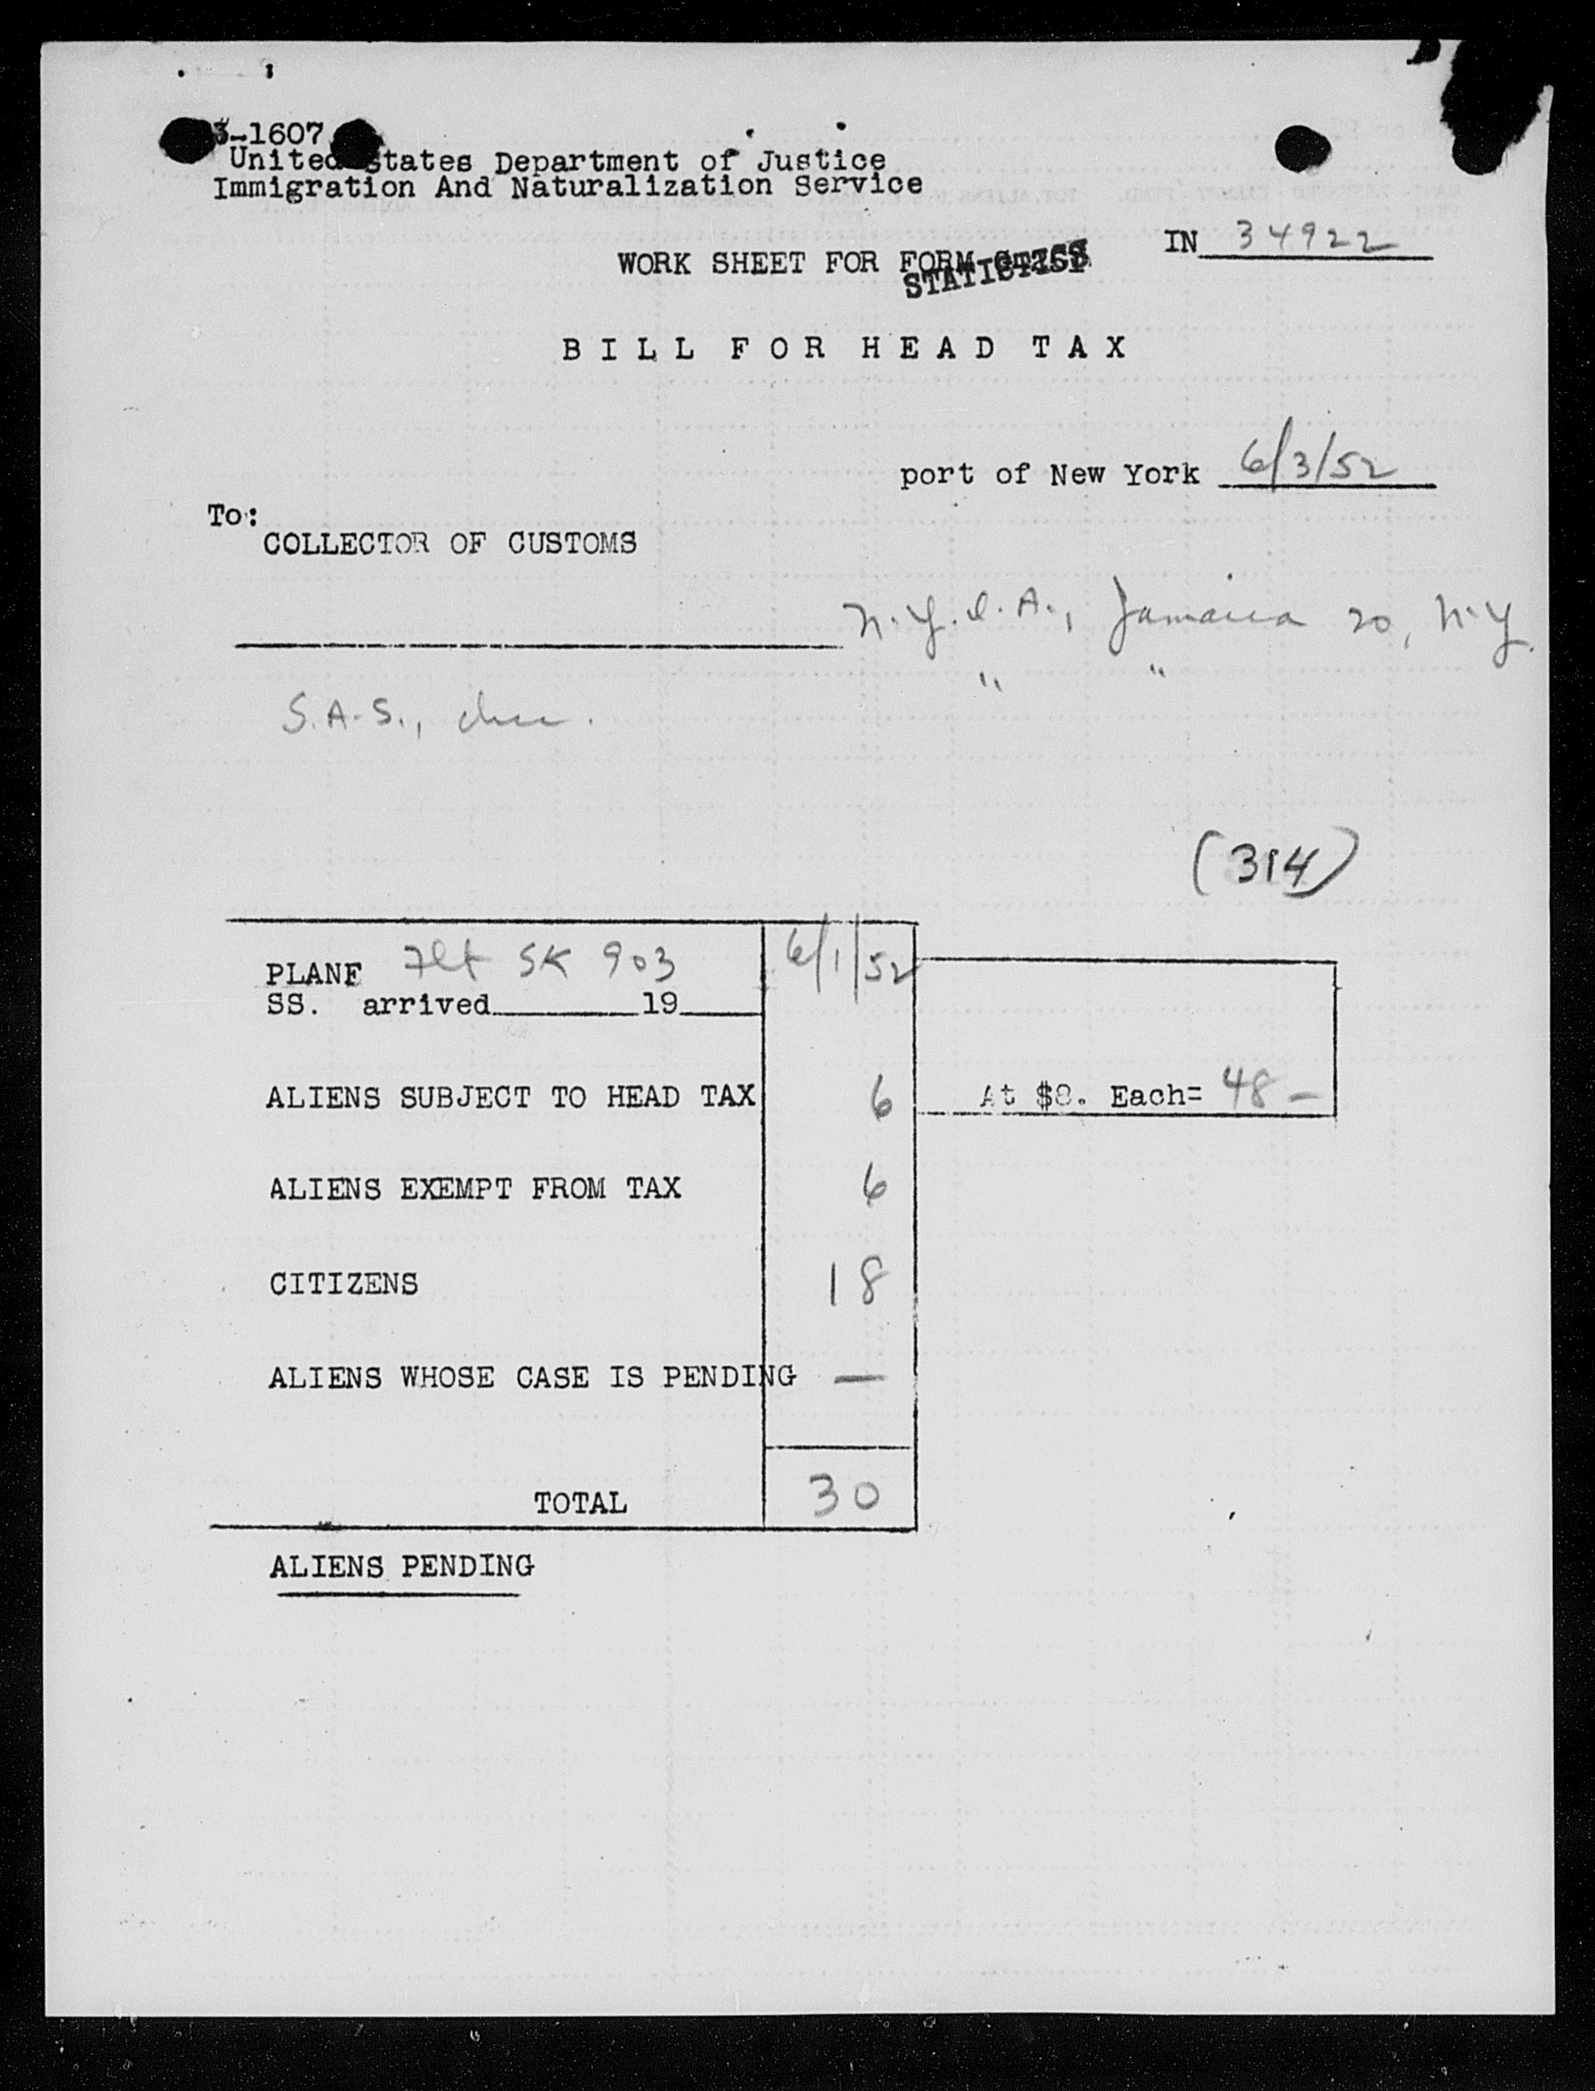 3-1607
United States Department of Justice
Immigration And Naturalization Service
IN 34922
WORK SHEET FOR FORM
STATISTICS
BILL FOR HEAD TAX
port of New York 6/3/52
To:
COLLECTOR OF CUSTOMS
N.Y.I.A., Jamaica 20, N.Y.
" "
S.A.S., Inc.
(314)
PLANE Flt SK 903 6/1/52
SS. arrived 19
ALIENS SUBJECT TO HEAD TAX 6 At $8. Each= 48 —
ALIENS EXEMPT FROM TAX 6
CITIZENS 18
ALIENS WHOSE CASE IS PENDING —
TOTAL 30
ALIENS PENDING